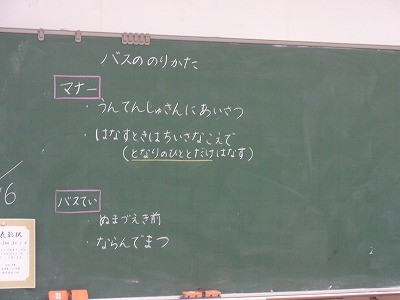 バスののりかた
マナー
・うんてんしゅさんにあいさつ
・はなすときはちいさなこえで
(となりのひととだけはなす)
バスてい
・ぬまづえき前
・ならんでまつ
/6
表彰状